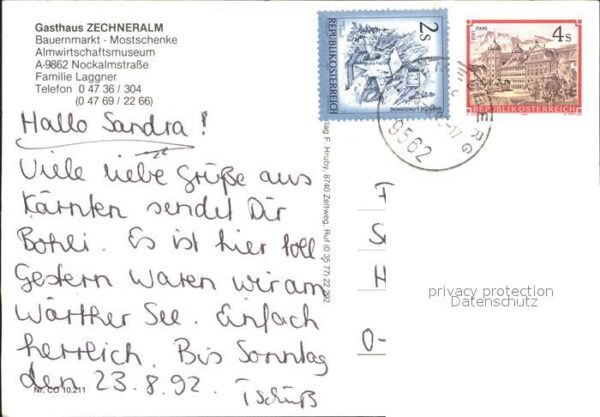 Gasthaus ZECHNERALM
Bauernmarkt - Mostschenke
Almwirtschaftsmuseum
A-9862 Nockalmstraße
Familie Laggner
Telefon 0 47 36 / 304
(0 47 69 / 22 66)
Hallo Sandra!
Viele liebe Grüße aus
Kärnten sendet Dir
Bohli. Es ist hier toll.
Gestern waren wir am
Wörther See. Einfach
herrlich. Bis Sonntag
den 23.8.92. Tschüß
Nr. CO 10.211
lag F. Hruby, 8740 Zeltweg, Ruf (0 35 77) 22 292
2s
REPUBLIK ÖSTERREICH
STAMS
4s
REPUBLIK ÖSTERREICH
9562
BERG
-17
F
S
H
O-
privacy protection
Datenschutz